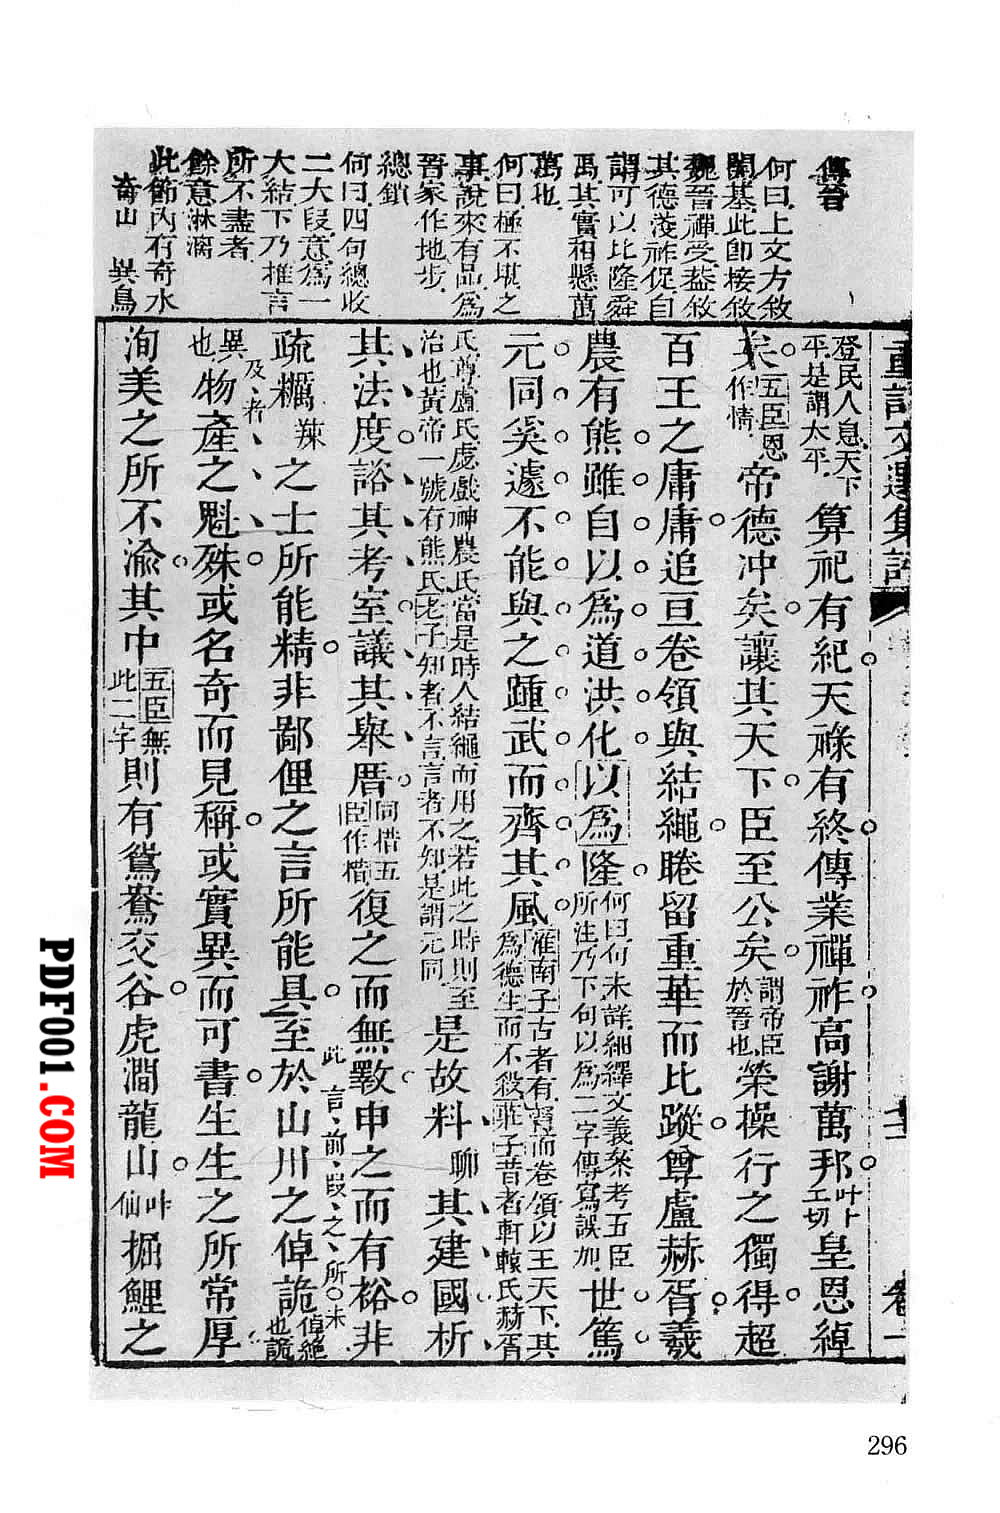 傳晉
何曰上文方敘
開基此即接敘
魏晉禪受益敘
其德淺祚促自
謂可以比隆舜
禹其實相懸萬
萬也
何曰極不堪之
事說來有品爲
晉家作地步
總鎖
何曰四句總收
二大段意爲一
大結下乃推言
所不盡者
餘意淋漓
此節內有奇水
奇山 異鳥
重訂文選集評
卷一
登民人息天下
平是謂太平
算祀有紀天祿有終傳業禪祚高謝萬邦
叶卜
工切
皇恩綽
矣
五臣恩
作情
帝德冲矣讓其天下臣至公矣
謂帝臣
於晉也
榮操行之獨得超
百王之庸庸追亘卷領與結繩睠留重華而比蹤尊盧赫胥羲
農有熊雖自以爲道洪化以爲隆
何曰何未詳細繹文義叅考五臣
所注乃下句以爲二字傳寫誤加
世篤
元同奚遽不能與之踵武而齊其風
淮南子古者有鍪而卷領以王天下其
爲德生而不殺莊子昔者軒轅氏赫胥
氏尊盧氏虙戲神農氏當是時人結繩而用之若此之時則至
治也黃帝一號有熊氏老子知者不言言者不知是謂元同
是故料
聊
其建國析
其法度諮其考室議其舉厝
同措五
臣作措
復之而無斁申之而有裕非
疏糲
辣
之士所能精非鄙俚之言所能具
此言前段之所未
及者
至於山川之倬詭
倬絕
也詭
異
也
物產之魁殊或名奇而見稱或實異而可書生生之所常厚
洵美之所不渝其中
五臣無
此二字
則有鴛鴦交谷虎澗龍山
叶
仙
掘鯉之
PDF001.COM
296